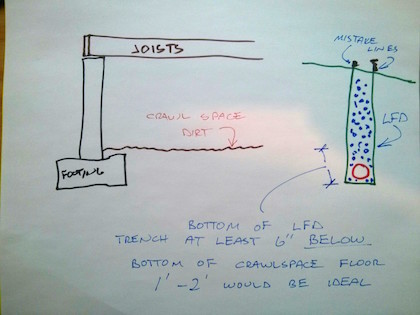 JOISTS
MISTAKE
LINES
CRAWL SPACE
DIRT
LFD
FOOTING
BOTTOM OF LFD
TRENCH AT LEAST 6" BELOW
BOTTOM OF CRAWLSPACE FLOOR
1' - 2' WOULD BE IDEAL